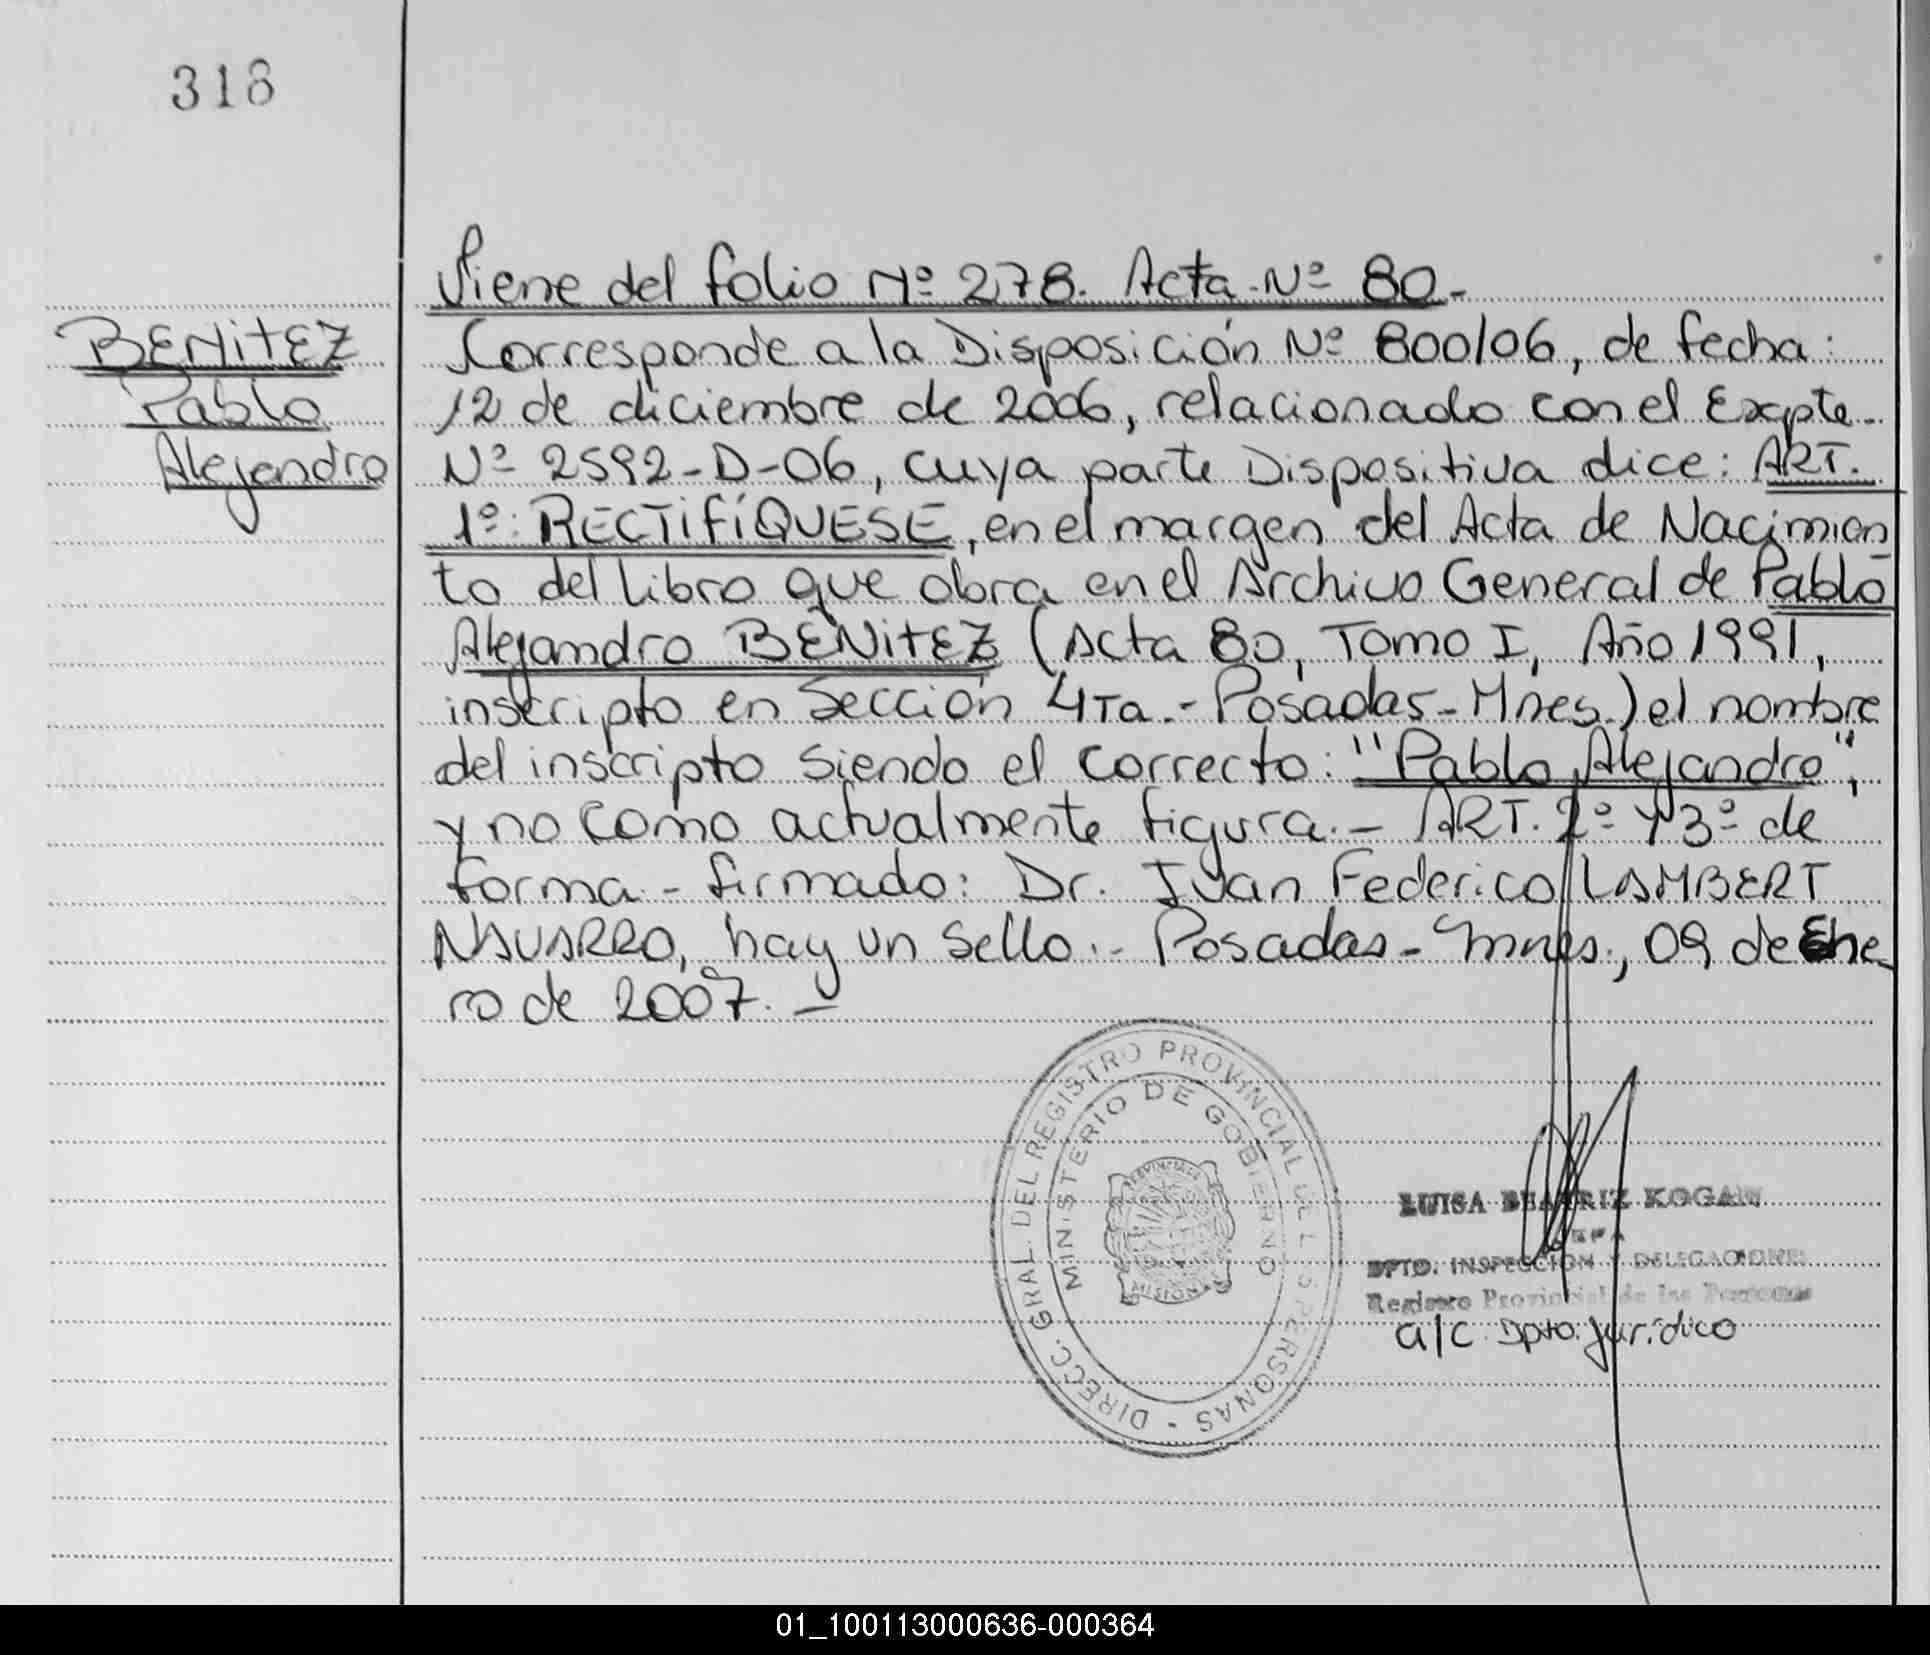 318
BENITEZ
Pablo
Alejandro
Viene del folio Nº 278. Acta Nº 80.-
Corresponde a la Disposición Nº 800/06, de fecha:
12 de diciembre de 2006, relacionado con el Expte.
Nº 2592-D-06, cuya parte Dispositiva dice: ART.
1º: RECTIFÍQUESE, en el margen del Acta de Nacimien
to del Libro que obra en el Archivo General de Pablo
Alejandro BENITEZ (Acta 80, Tomo I, Año 1991,
inscripto en Sección 4Ta.- Posadas-Mnes.) el nombre
del inscripto siendo el correcto: "Pablo Alejandro",
y no como actualmente figura.- ART. 2º y 3º de
forma.- firmado: Dr. Ivan Federico LAMBERT
NAVARRO, hay un sello.- Posadas-Mnes., 09 de Ene
ro de 2007.-
DIRECC. GRAL. DEL REGISTRO PROVINCIAL DE LAS PERSONAS -
MINISTERIO DE GOBIERNO
PROVINCIA DE
MISIONES
LUISA BEATRIZ KOGAN
JEFA
DPTO. INSPECCION Y DELEGACIONES
Registro Provincial de las Personas
a/c Dpto. Jurídico
01_100113000636-000364